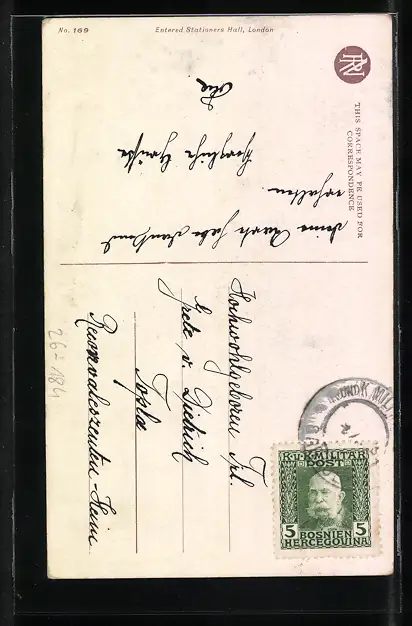 No. 169
Entered Stationers Hall, London
THIS SPACE MAY BE USED FOR
CORRESPONDENCE
Deine Karte habe dankend
erhalten.
Herzliche Grüße
Hochwohlgeboren Frl.
Grete v. Dietrich
Topla
Reconvaleszenten-Heim
26-184
K.u.K. MILITÄR
POST
5 5
BOSNIEN
HERCEGOVINA